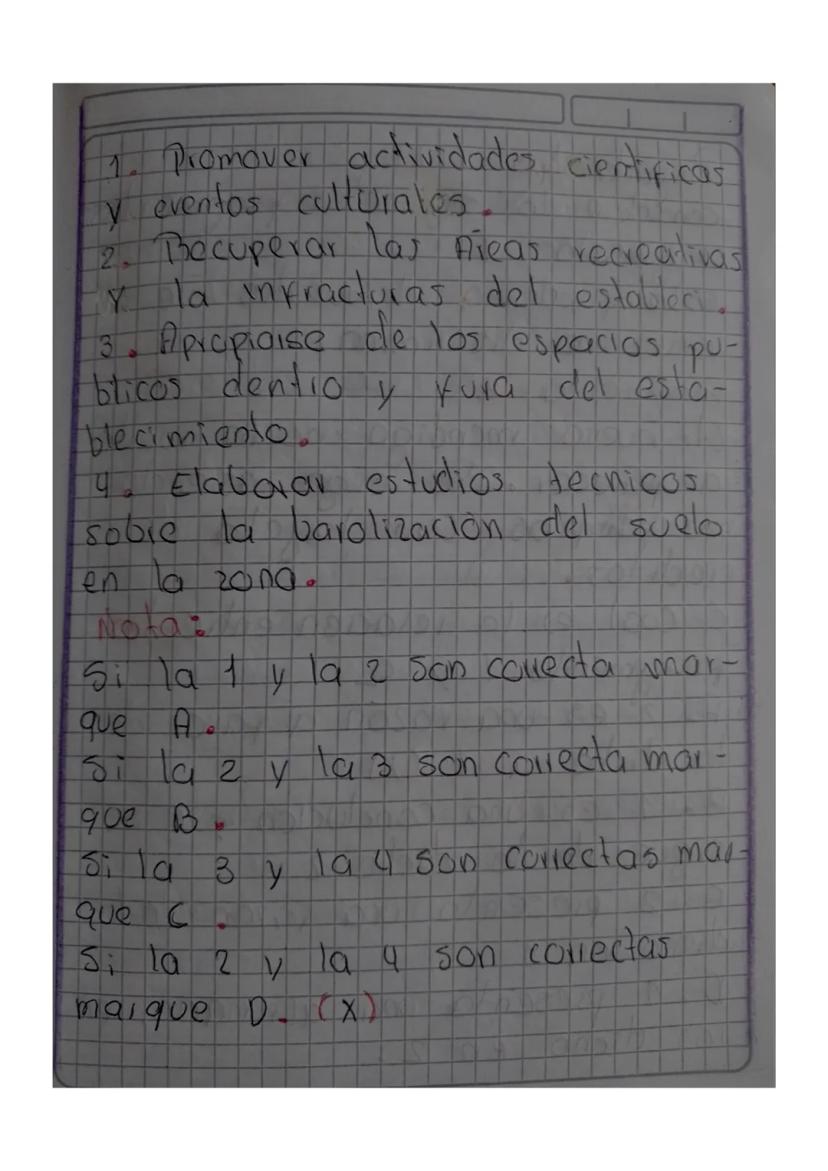 1. Promover actividades cientificas
y eventos culturales.
2. Recuperar las Areas recreativas
y la infracturas del estableci.
3. Apropiarse de los espacios pu-
blicos dentro y fura del esta-
blecimiento.
4. Elaborar estudios tecnicos
sobre la barolización del suelo
en la zona.
Nota:
Si la 1 y la 2 son correcta mar-
que A.
Si la 2 y la 3 son correcta mar-
que B.
Si la 3 y la 4 son correctas mar-
que C.
Si la 2 y la 4 son correctas
marque D. (X)